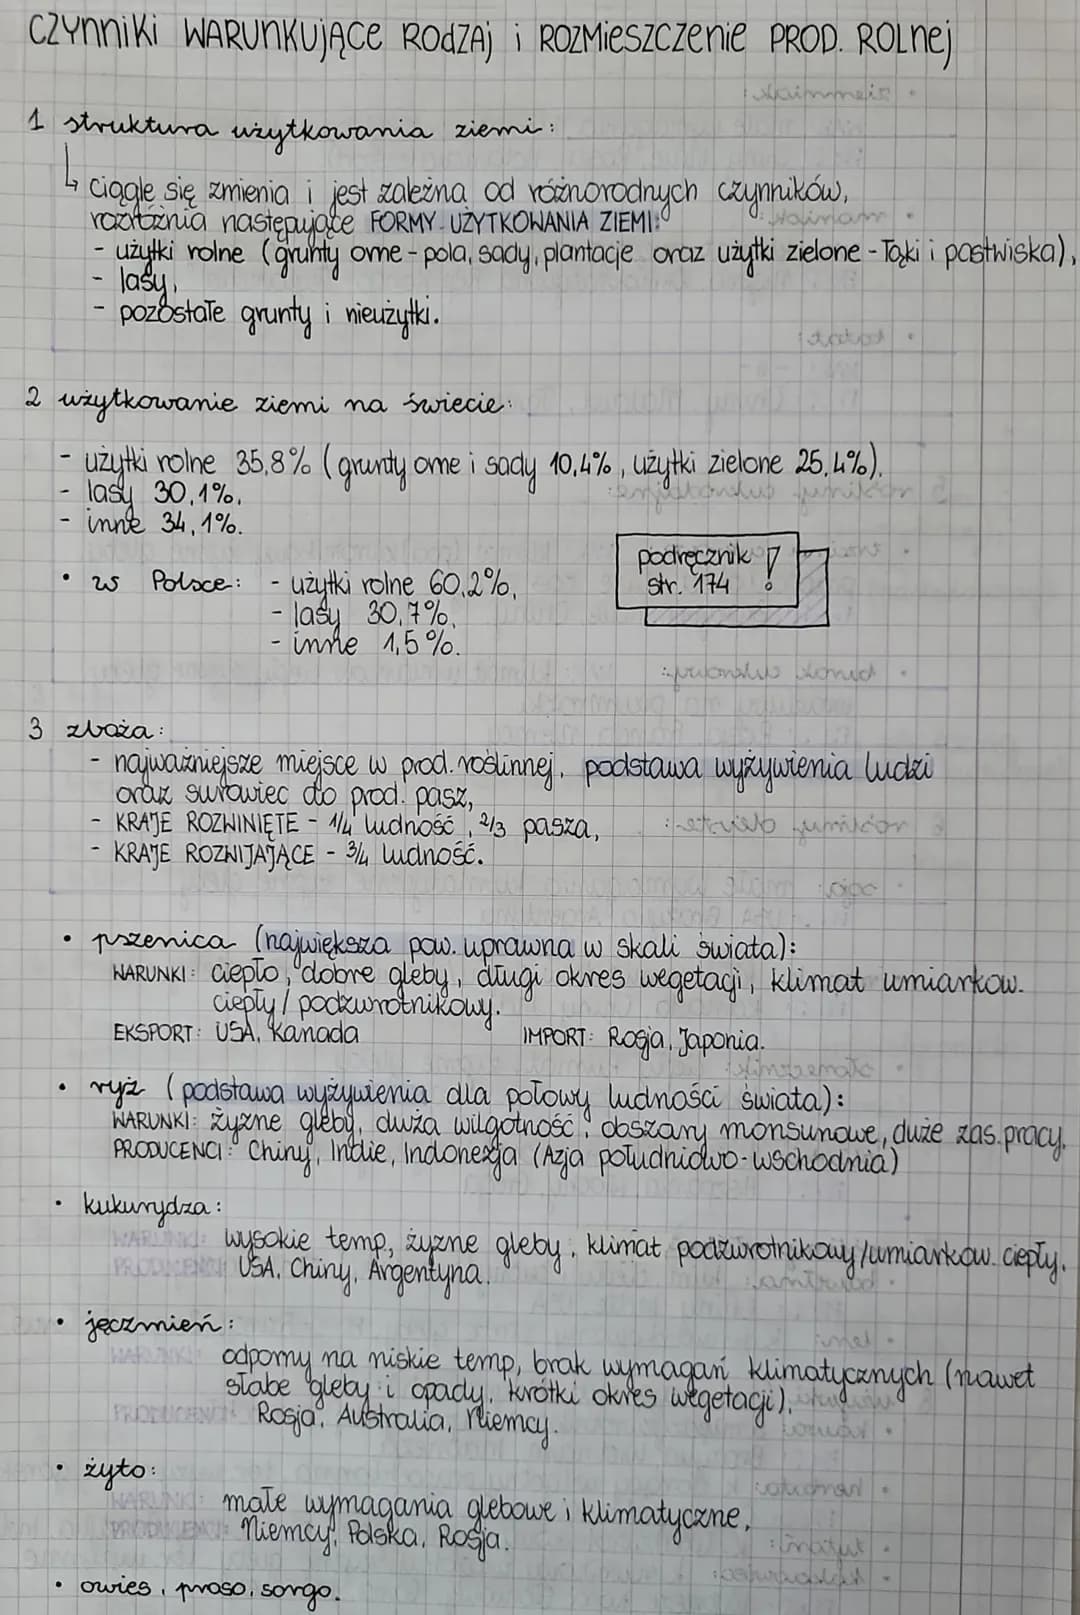 CZYNNIKI WARUNKUJĄCE RODZAJ i ROZMIESZCZENIE PROD. ROLNEJ
1 struktura użytkowania ziemi:
↳ ciągle się zmienia i jest zależna od różnorodnych czynników,
rozróżnia następujące FORMY UŻYTKOWANIA ZIEMI:
- użytki rolne (grunty orne - pola, sady, plantacje oraz użytki zielone - łąki i pastwiska),
- lasy,
- pozostałe grunty i nieużytki.
2 użytkowanie ziemi na świecie:
- użytki rolne 35,8% (grunty orne i sady 10,4%, użytki zielone 25,4%),
- lasy 30,1%,
- inne 34,1%.
podręcznik !
str. 174
• w Polsce: - użytki rolne 60,2%,
- lasy 30,7%,
- inne 1,5%.
3 zboża:
- najważniejsze miejsce w prod. roślinnej, podstawa wyżywienia ludzi
oraz surowiec do prod. pasz,
- KRAJE ROZWINIĘTE - 1/4 ludność, 2/3 pasza,
- KRAJE ROZWIJAJĄCE - 3/4 ludność.
• pszenica (największa pow. uprawna w skali świata):
WARUNKI: ciepło, dobre gleby, długi okres wegetacji, klimat umiarkow.
ciepły / podzwrotnikowy.
EKSPORT: USA, Kanada IMPORT: Rosja, Japonia.
• ryż (podstawa wyżywienia dla połowy ludności świata):
WARUNKI: żyzne gleby, duża wilgotność, obszary monsunowe, duże zas. pracy.
PRODUCENCI: Chiny, Indie, Indonezja (Azja południowo-wschodnia)
• kukurydza:
WARUNKI: wysokie temp., żyzne gleby, klimat podzwrotnikowy/umiarkow. ciepły.
PRODUCENCI: USA, Chiny, Argentyna.
• jęczmień:
WARUNKI: odporny na niskie temp, brak wymagań klimatycznych (nawet
słabe gleby i opady, krótki okres wegetacji),
PRODUCENCI: Rosja, Australia, Niemcy.
• żyto:
WARUNKI: małe wymagania glebowe i klimatyczne,
PRODUCENCI: Niemcy, Polska, Rosja.
• owies, proso, sorgo.